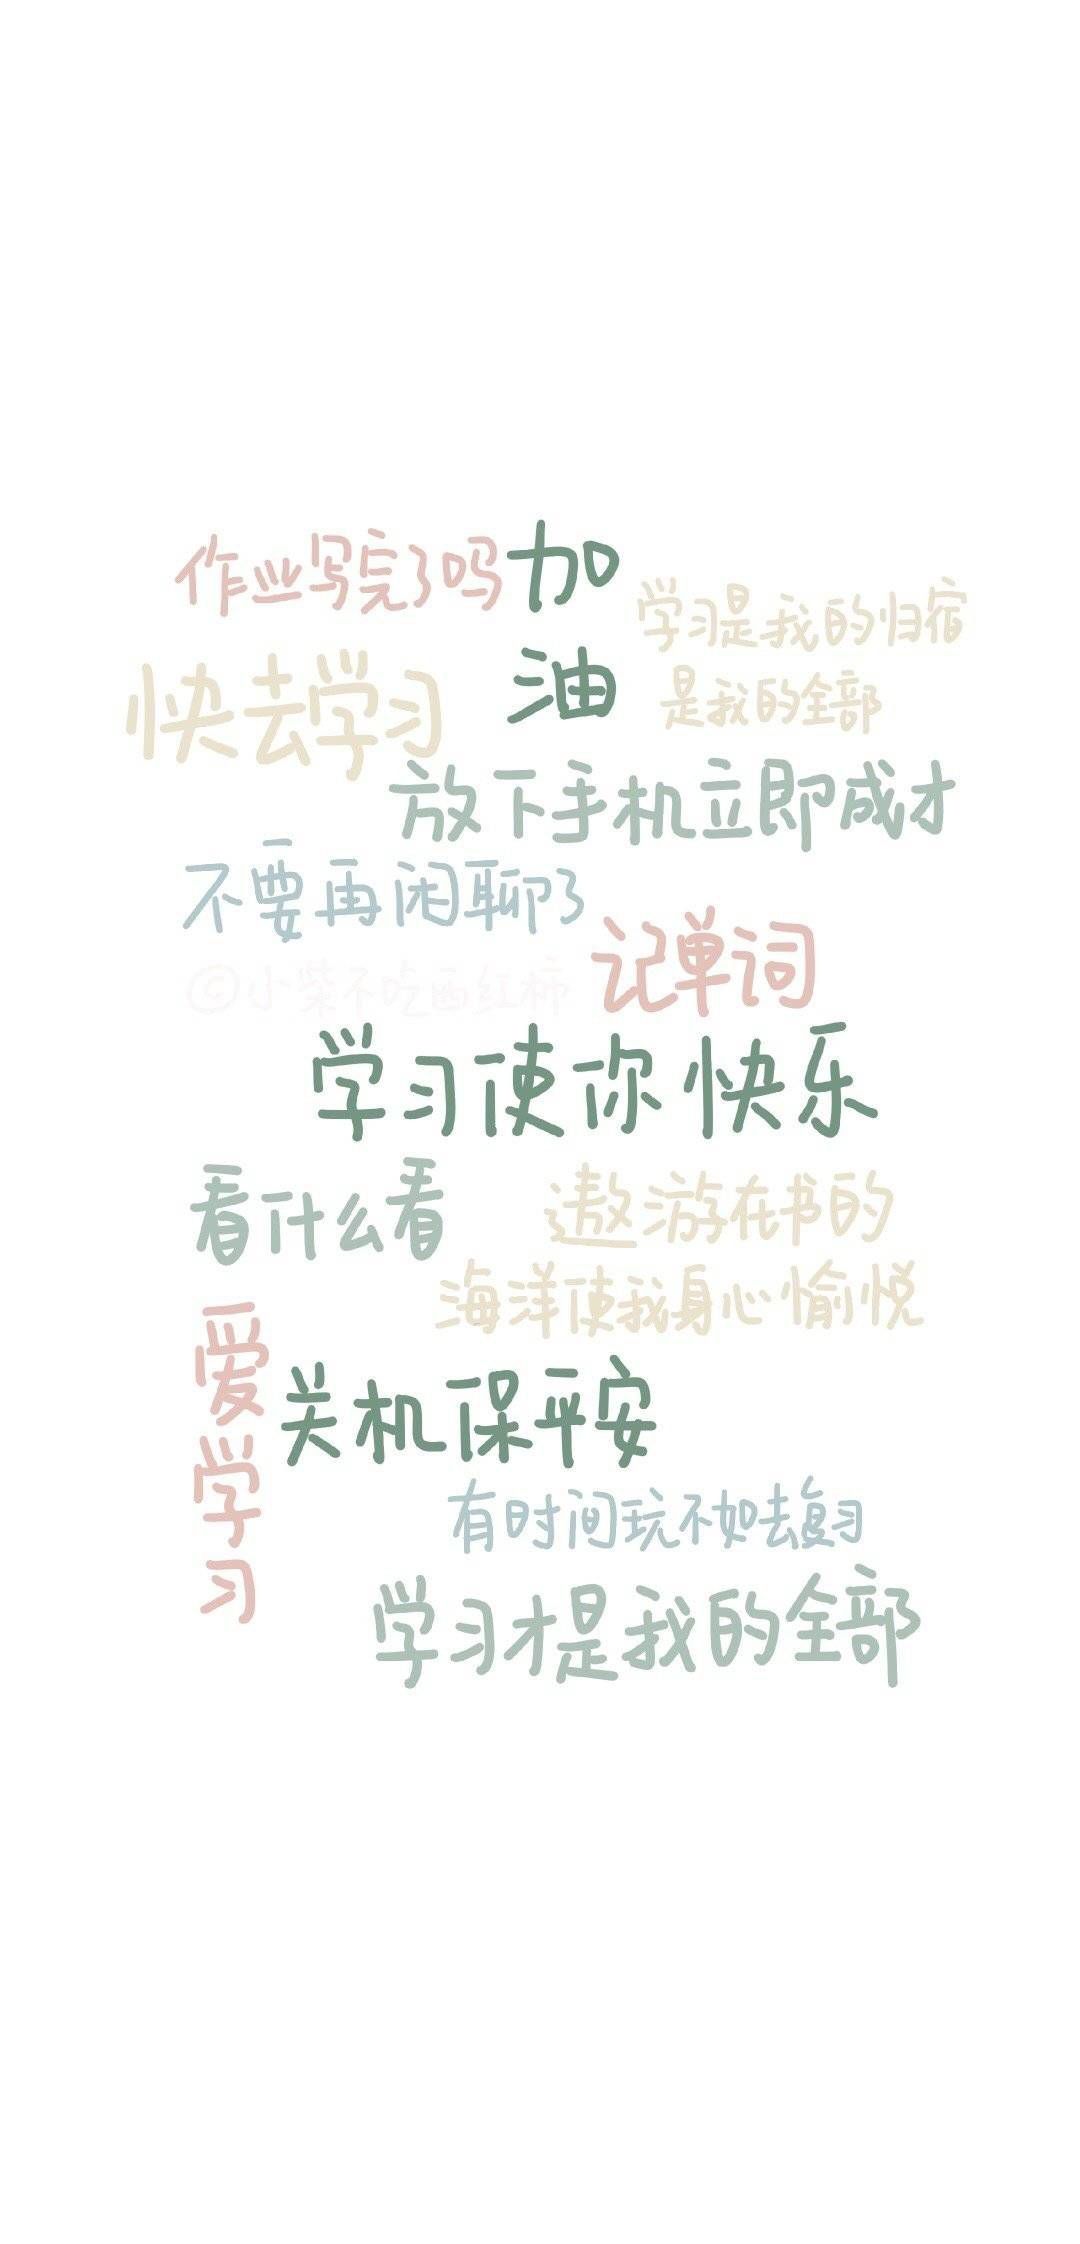 作业写完了吗
加油
学习是我的归宿
是我的全部
快去学习
放下手机立即成才
不要再闲聊了
记单词
©小柴不吃西红柿
学习使你快乐
看什么看
遨游在书的
海洋使我身心愉悦
爱学习
关机保平安
有时间玩不如去复习
学习才是我的全部